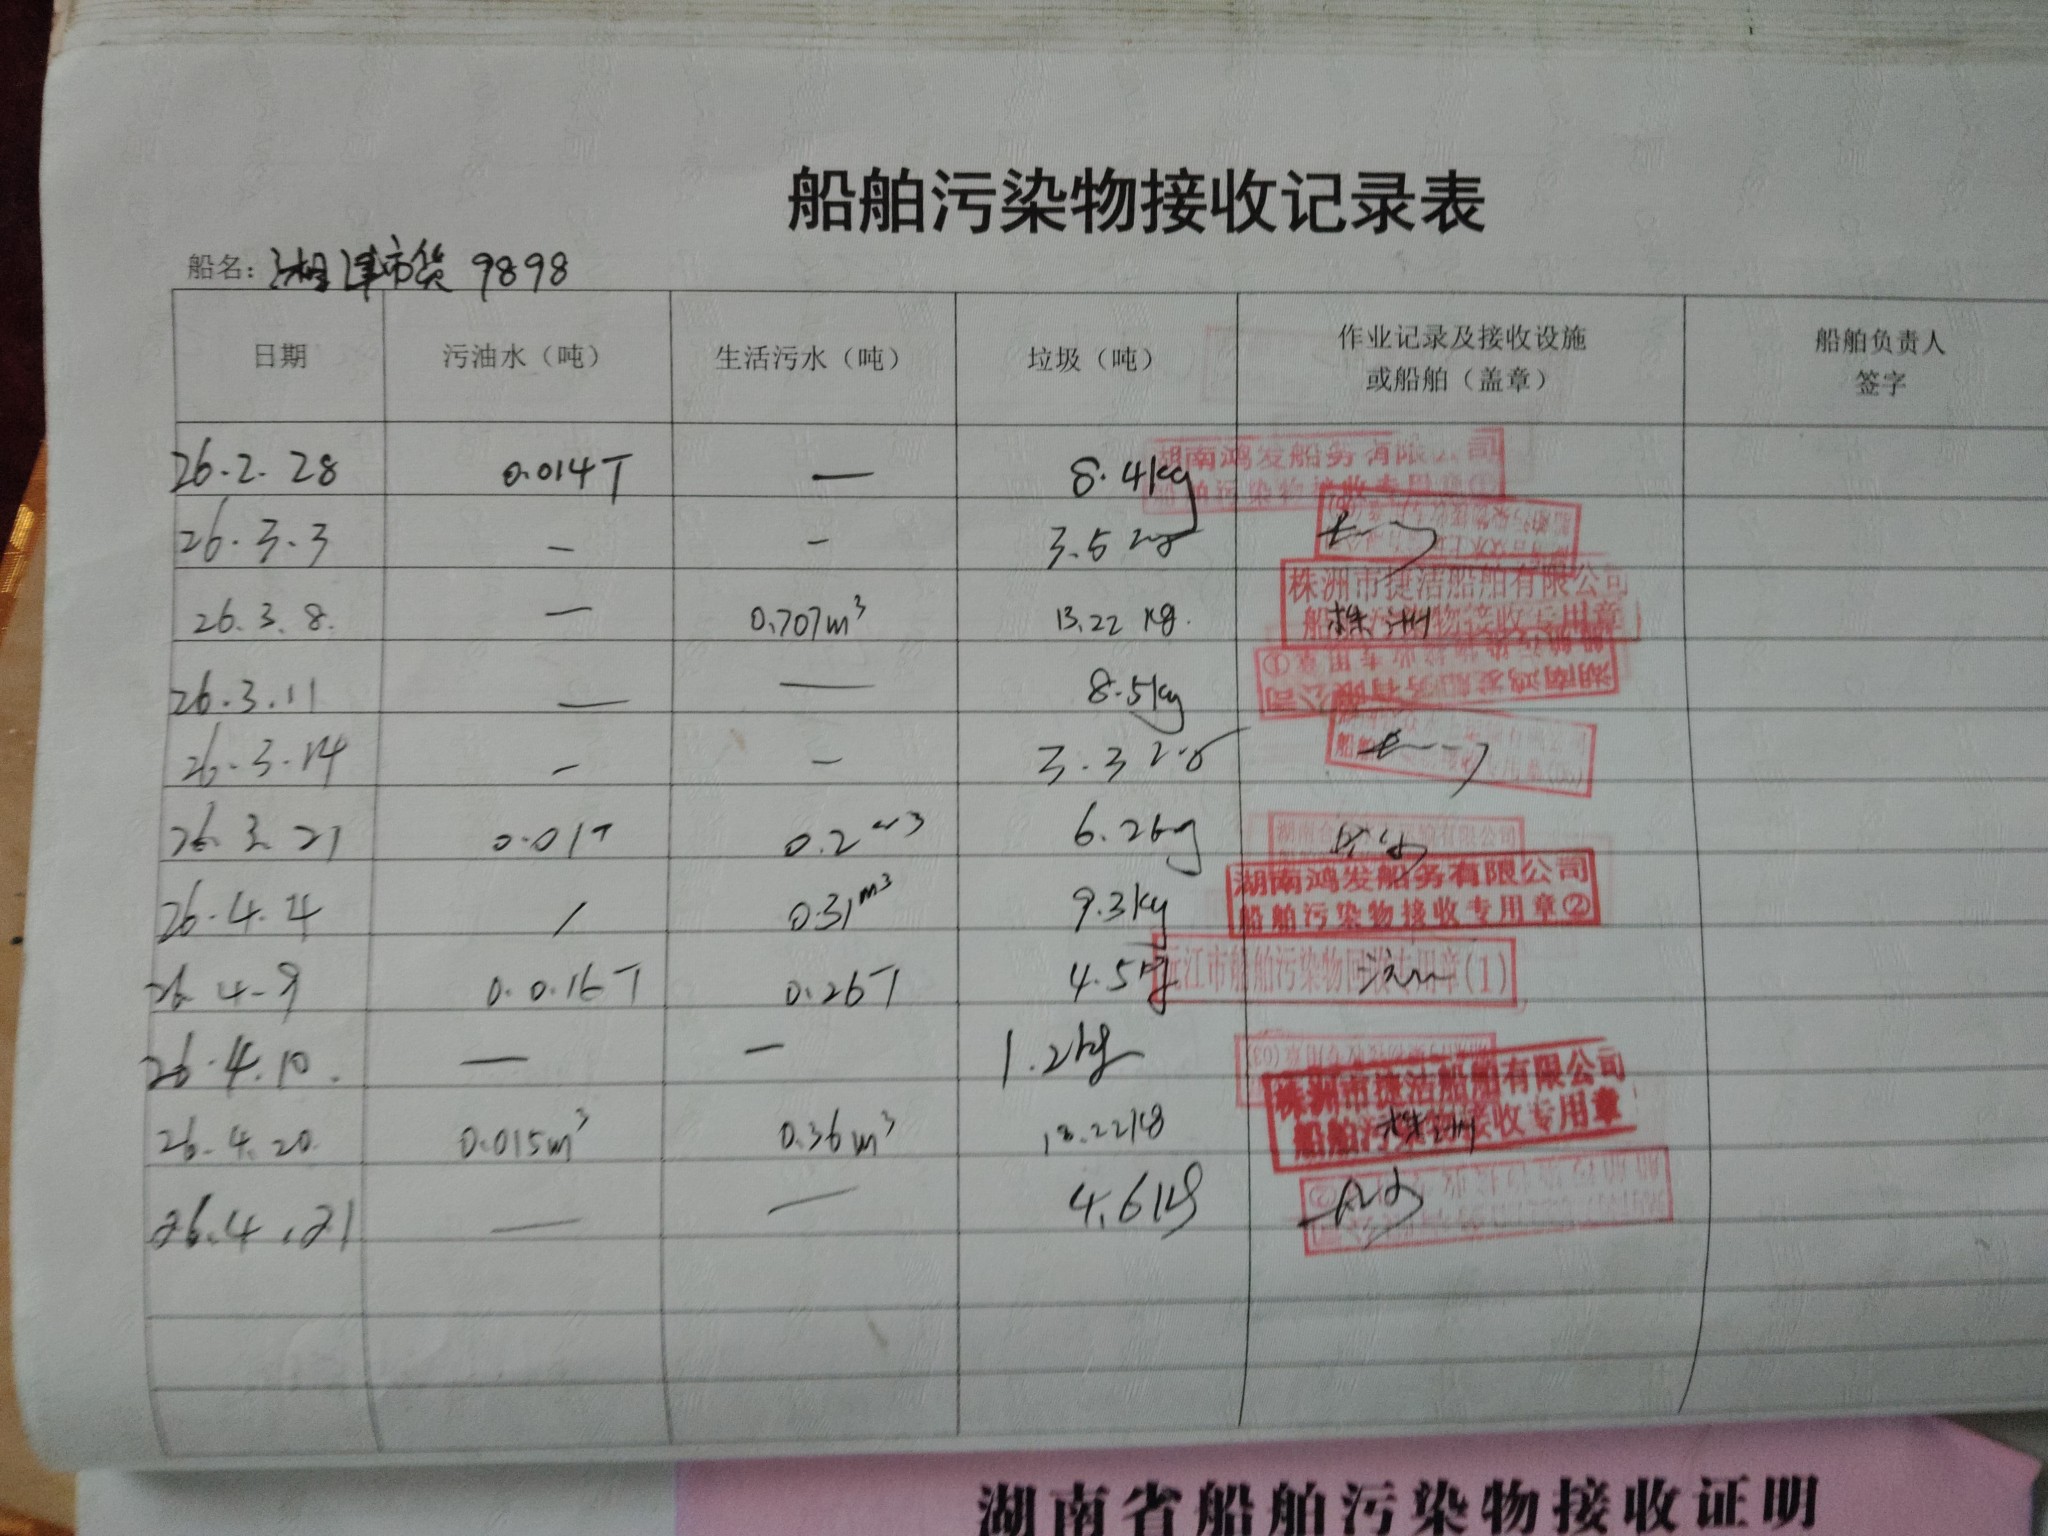 船舶污染物接收记录表
船名：湘津市货 9898
日期 污油水（吨） 生活污水（吨） 垃圾（吨） 作业记录及接收设施或船舶（盖章） 船舶负责人签字
26.2.28 0.014T — 8.4kg 湖南鸿发船务有限公司 船舶污染物接收专用章
26.3.3 — — 3.5kg
26.3.8. — 0.707m³ 13.22 kg. 株洲市捷洁船舶有限公司 船舶污染物接收专用章 株洲
26.3.11 — — 8.5kg 湖南鸿发船务有限公司 船舶污染物接收专用章①
26.3.14 — — 3.3kg
26.3.21 0.01T 0.2m³ 6.2kg
26.4.4 / 0.31m³ 9.3kg 湖南鸿发船务有限公司 船舶污染物接收专用章②
26.4.9 0.016T 0.26T 4.5kg 沅江市船舶污染物回收专用章(1)
26.4.10. — — 1.2kg
26.4.20. 0.015m³ 0.36m³ 株洲市捷洁船舶有限公司 船舶污染物接收专用章 株洲
26.4.21 — — 4.6kg
湖南省船舶污染物接收证明